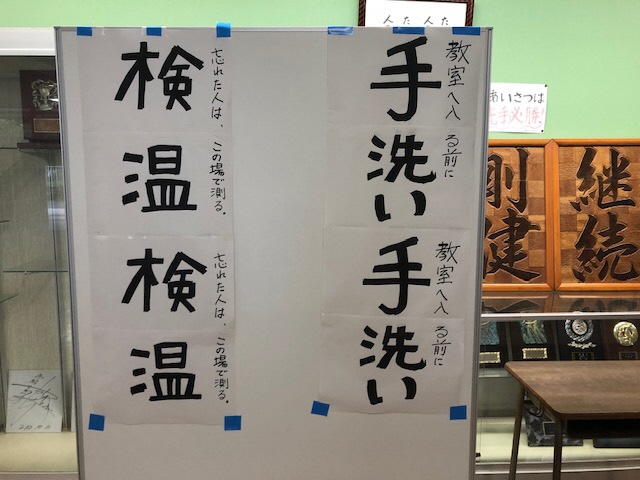 教室へ入る前に
手洗い
教室へ入る前に
手洗い
忘れた人は、この場で測る。
検温
忘れた人は、この場で測る。
検温
あいさつは
先手必勝!
継続
剛健